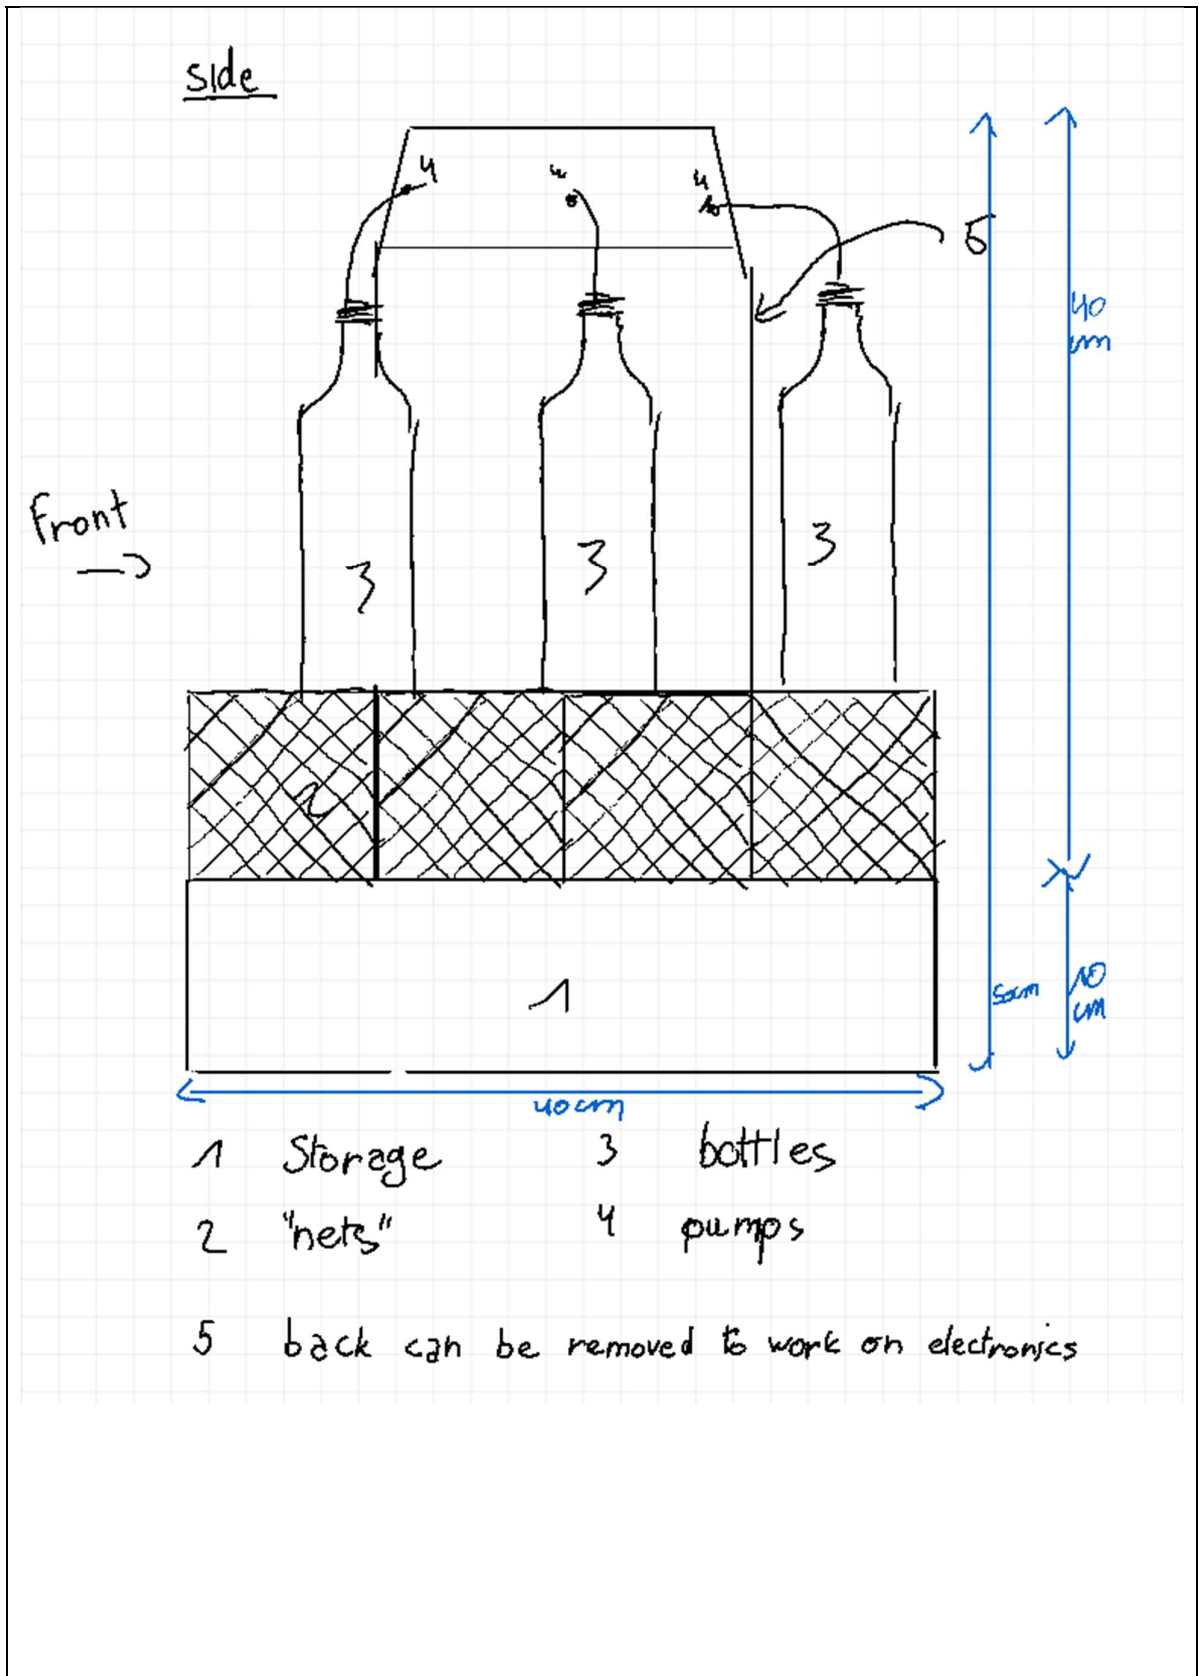 side
4 4 4
5
40
cm
Front
3 3 3
2
1
50cm
10
cm
40cm
1 Storage 3 bottles
2 "nets" 4 pumps
5 back can be removed to work on electronics